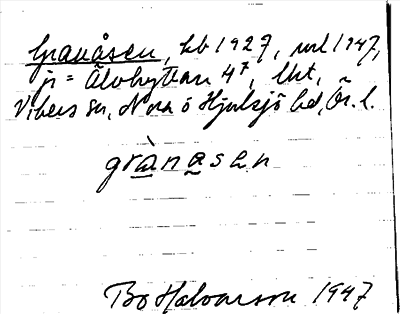 Granåsen, hb 1927, url 1947,
jr = Älvhyttan 4⁷, lht,
Vikers sn, Nora o Hjulsjö bd, Ör. l.
grànasen
Bo Halvarson 1947